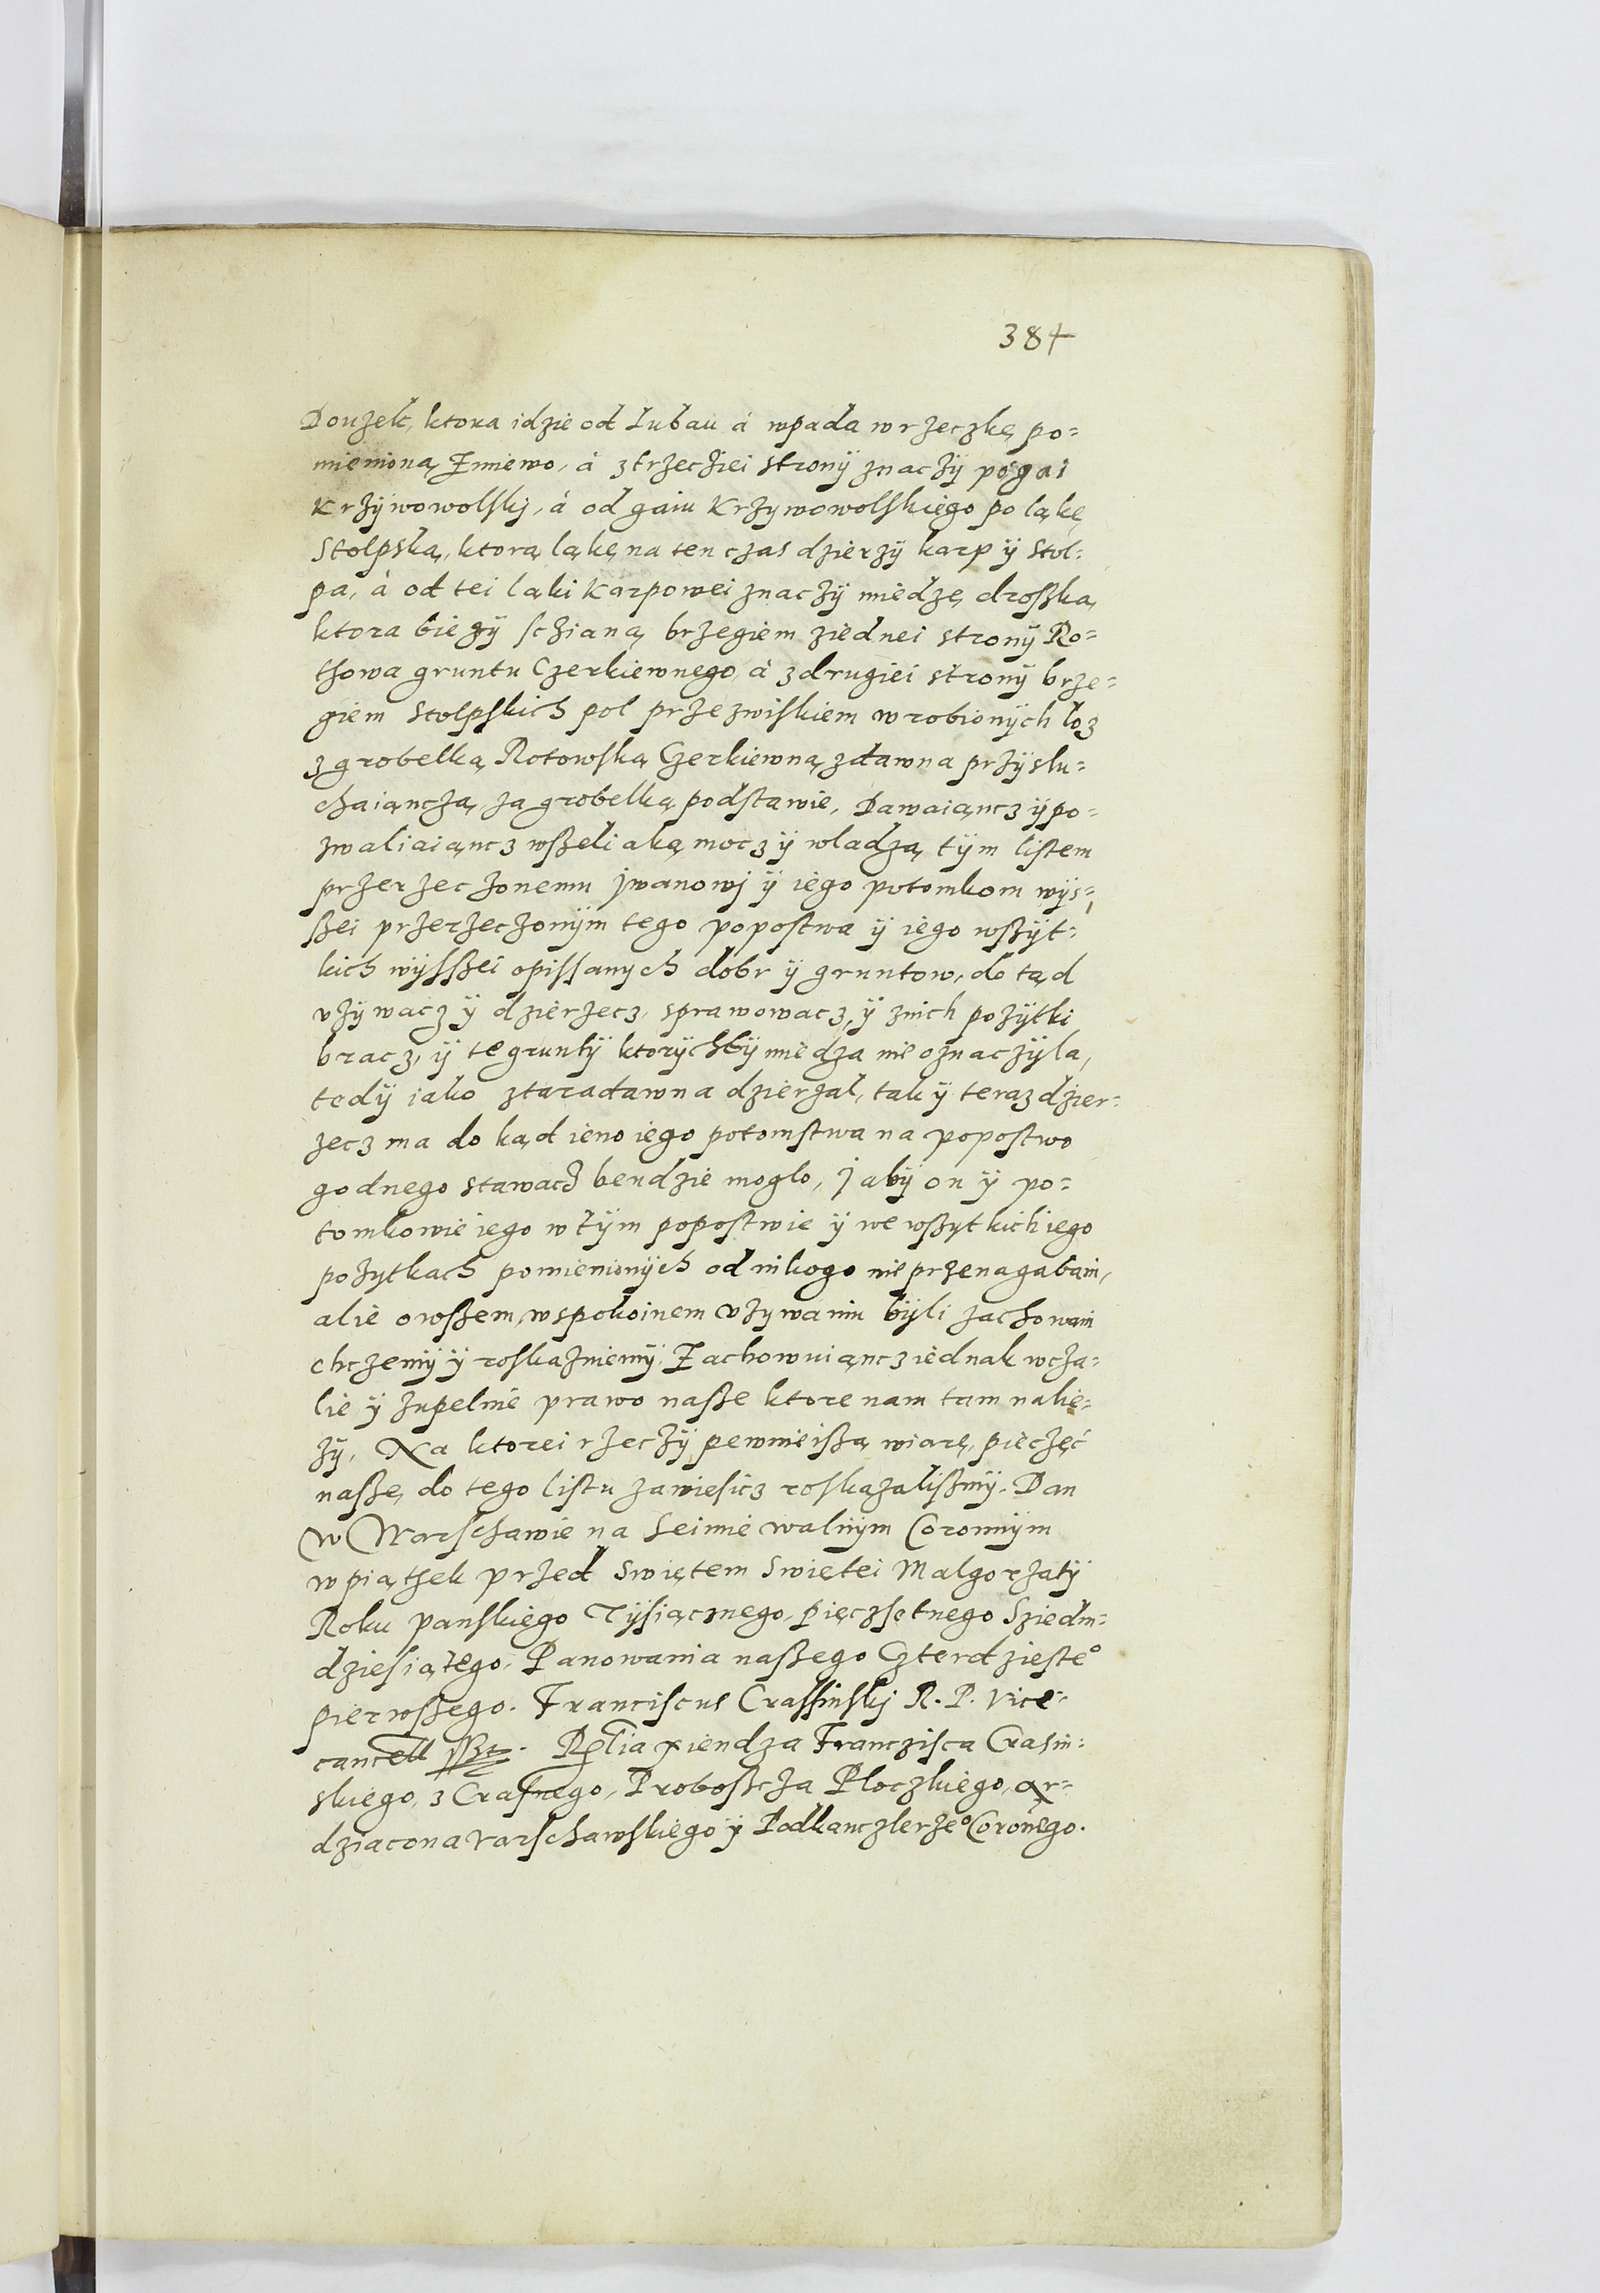 384
Douzek, ktora idzie od Lubau á wpada w rzeczkę po=
mienioną Zniewo, á z trzeciei strony znaczÿ po gai
Krzÿwowolskj, á od gaiu Krzywowolskiego po ląkę
Stolpską, ktorą ląkę na ten czas dzierzÿ karp ÿ Stol=
pa, á od tei ląki Karpowei znaczÿ miedzę droszka,
ktora bieżÿ sczianą brzegiem z iednei stronÿ Ro=
thowa gruntu Czerkiewnego á z drugiei stronÿ brze=
giem Stolpskich pol przezwiskiem w robionÿch loz
z grobelką Rotowską Czerkiewną zdawna przÿslu=
chaiącą, za grobelką podstawie, Dawaiancz ÿ po=
zwaliaiąncz wszeliaką mocz ÿ wladzą tÿm listem
przerzeczonemu jwanowj ÿ iego potomkom wÿs=
szei przerzeczonÿm tego popostwa ÿ iego wszÿt=
kich wÿsszei opissanych dobr ÿ gruntow, do tąd
vżÿwacz ÿ dzierzecz, sprawowacz, ÿ znich pożÿtki
bracz, ÿ te gruntÿ ktorÿchbÿ miedza nie oznaczÿla,
tedÿ iako ztaradawna dzierzal, tak ÿ teraz dzier=
zecz ma do kąd ieno iego potomstwa na popostwo
godnego stawacz bendzie moglo, j abÿ on ÿ po=
tomkowie iego w tÿm popostwie ÿ we wszytkich iego
pożytkach pomienionÿch od nikogo nie przenagabani,
alie owszem, w spokoinem vżywaniu bÿli zachowani
chczemÿ ÿ roskazuiemÿ. Zachowuiąncz iednak wcza=
lie ÿ zupelnie prawo nasze ktore nam tam nalie=
żÿ, Na ktorei rzeczÿ pewnieiszą wiarę, pieczęć
naszę do tego listu zawiesicz roskazaliszmÿ. Dan
w Warschawie na Seimie walnÿm Coronnÿm
w piąthek przed swiętem swiętei Malgorzatÿ
Roku panskiego Tÿsiącznego, pięczsetnego Sziedm=
dziesiątego, Panowania naszego Czterdzieste°
pierwszego. Franciscus Crassinskj R. P. Vice=
cancell sszt. Rela xiendza Franczisca Crasin=
skiego, z Crasnego, Proboszcza Ploczkiego, Ar=
dziacona varschawskiego ÿ Podkanczlerze° Coronego.